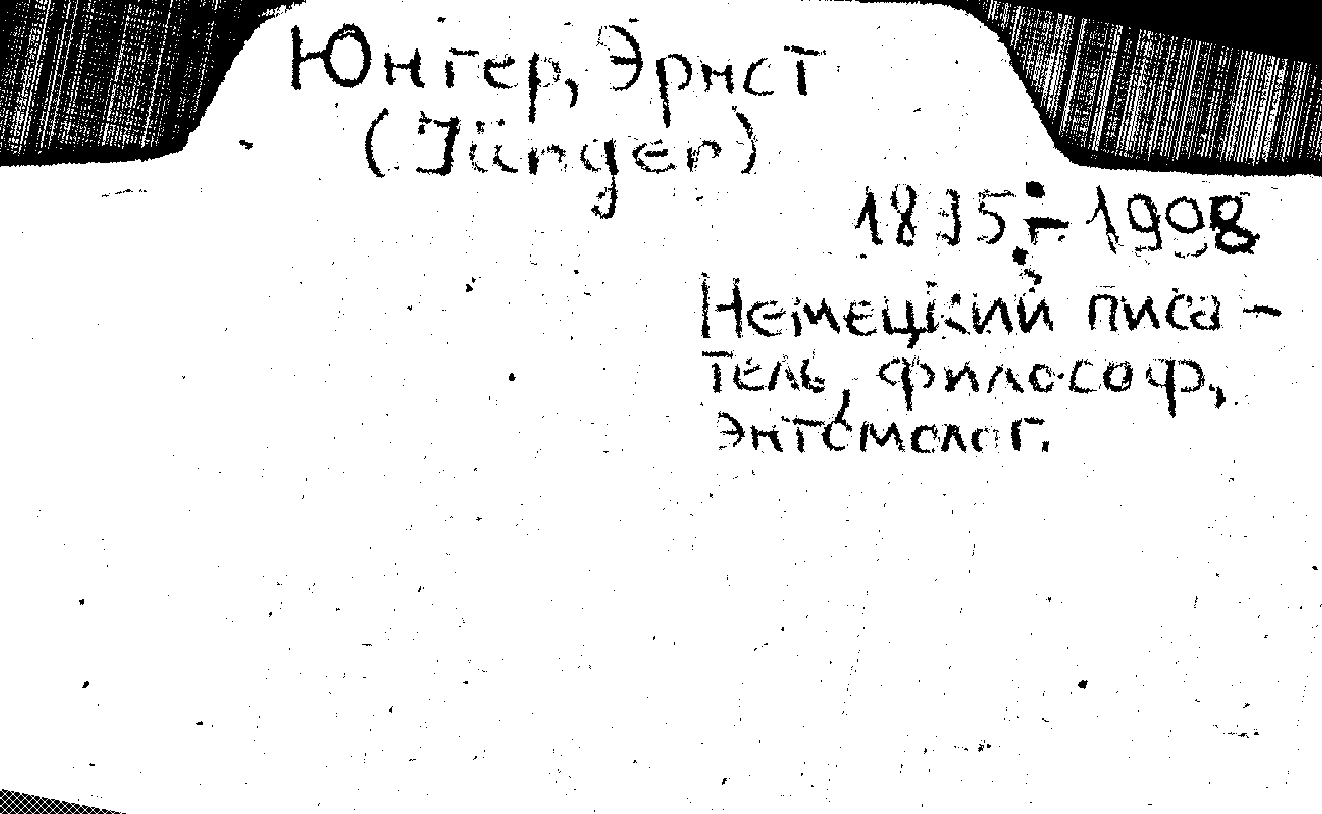 Юнгер, Эрнст
(Jünger)
1895-1998
Немецкий писа-
тель, философ,
энтомолог.